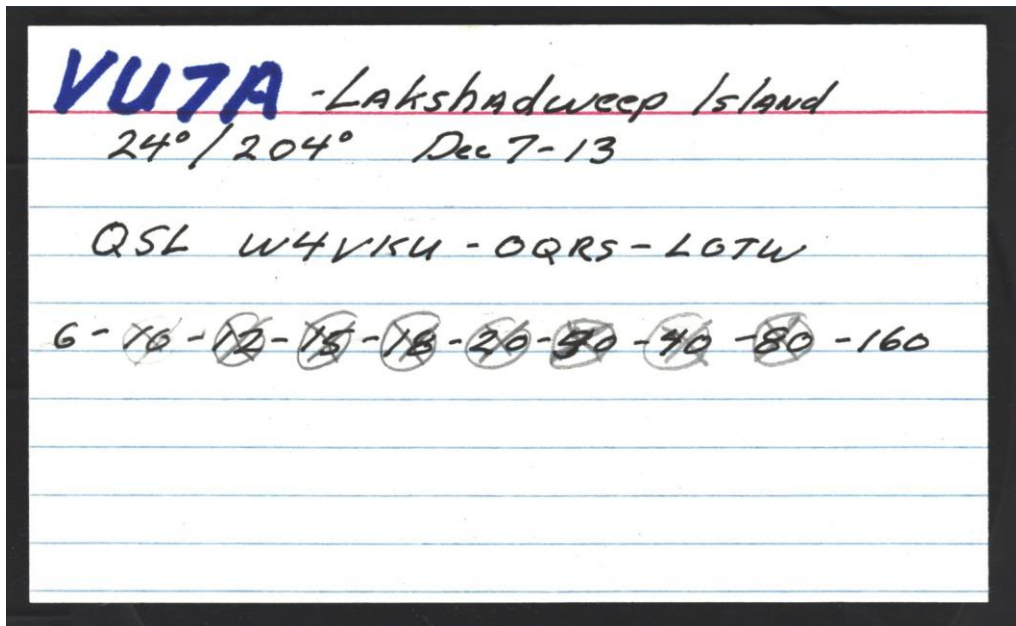 VU7A - Lakshadweep Island
24°/204° Dec 7-13
QSL W4VKU - OQRS - LOTW
6 - 10 - 12 - 15 - 18 - 20 - 30 - 40 - 80 - 160